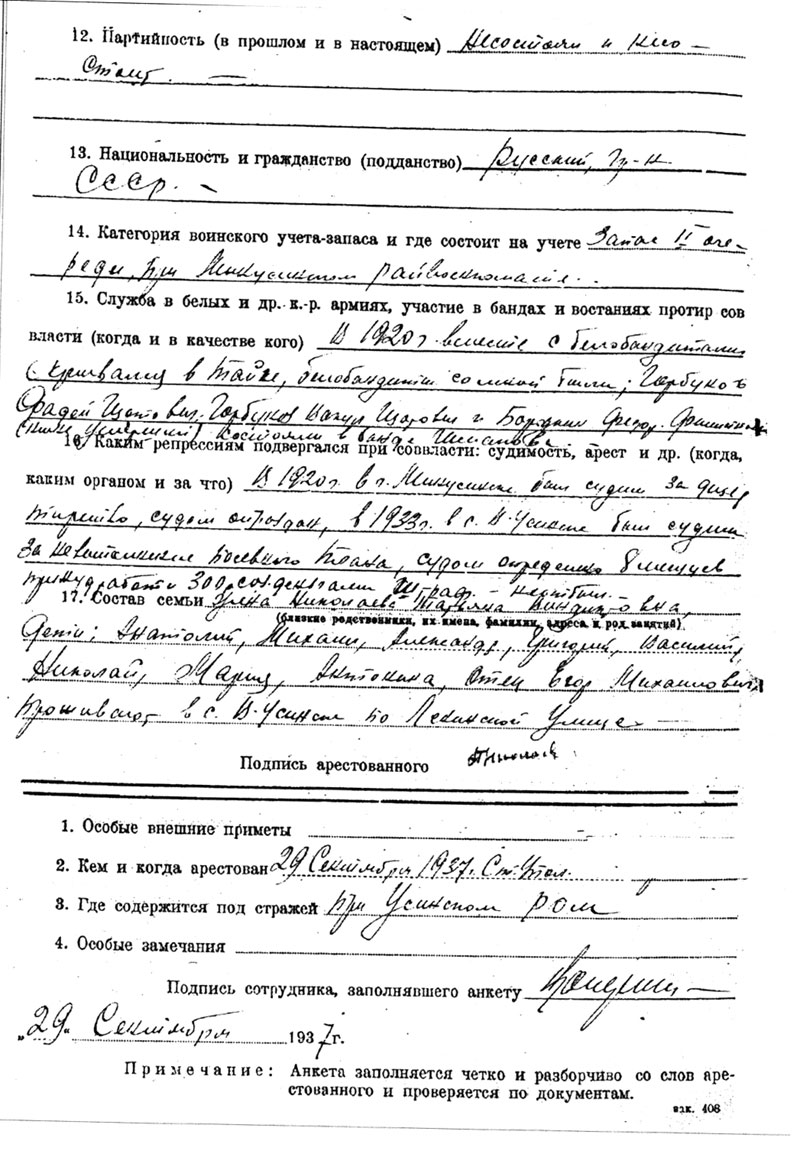 12. Партийность (в прошлом и в настоящем) Несостоял и несо-
стоит. —
13. Национальность и гражданство (подданство) Русский, гр-н
СССР. —
14. Категория воинского учета-запаса и где состоит на учете Запас II оче-
реди, при Минусинском райвоенкомате.
15. Служба в белых и др. к.-р. армиях, участие в бандах и востаниях протир сов
власти (когда и в качестве кого) В 1920 г вместе с белобандитами
скрывался в тайге, белобандиты со мной были; Горбунов
Фадей Горбунов и Бородкин Федор
состояли в банде
16. Каким репрессиям подвергался при соввласти: судимость, арест и др. (когда,
каким органом и за что) В 1920 г в г. Минусинске был судим за дезер
тирство, судом оправдан, в 1933 г. в с. В-Усинске был судим
за невыполнение посевного плана, судом определено 8 месяцев
принуд работы и 300 штраф. —
17. Состав семьи Николаевна
(близкие родственники, их имена, фамилии, адреса и род занятий)
дети: Анатолий, Михаил, Александр, Григорий, Василий,
Николай, Мария, Антонина, Отец Егор Михайлович
проживают в с. В-Усинск по Ленинской улице —
Подпись арестованного
1. Особые внешние приметы
2. Кем и когда арестован 29 Сентября 1937 г.
3. Где содержится под стражей при Усинском ром
4. Особые замечания
Подпись сотрудника, заполнявшего анкету
„29" Сентября 1937г.
Примечание: Анкета заполняется четко и разборчиво со слов аре-
стованного и проверяется по документам.
зак. 406